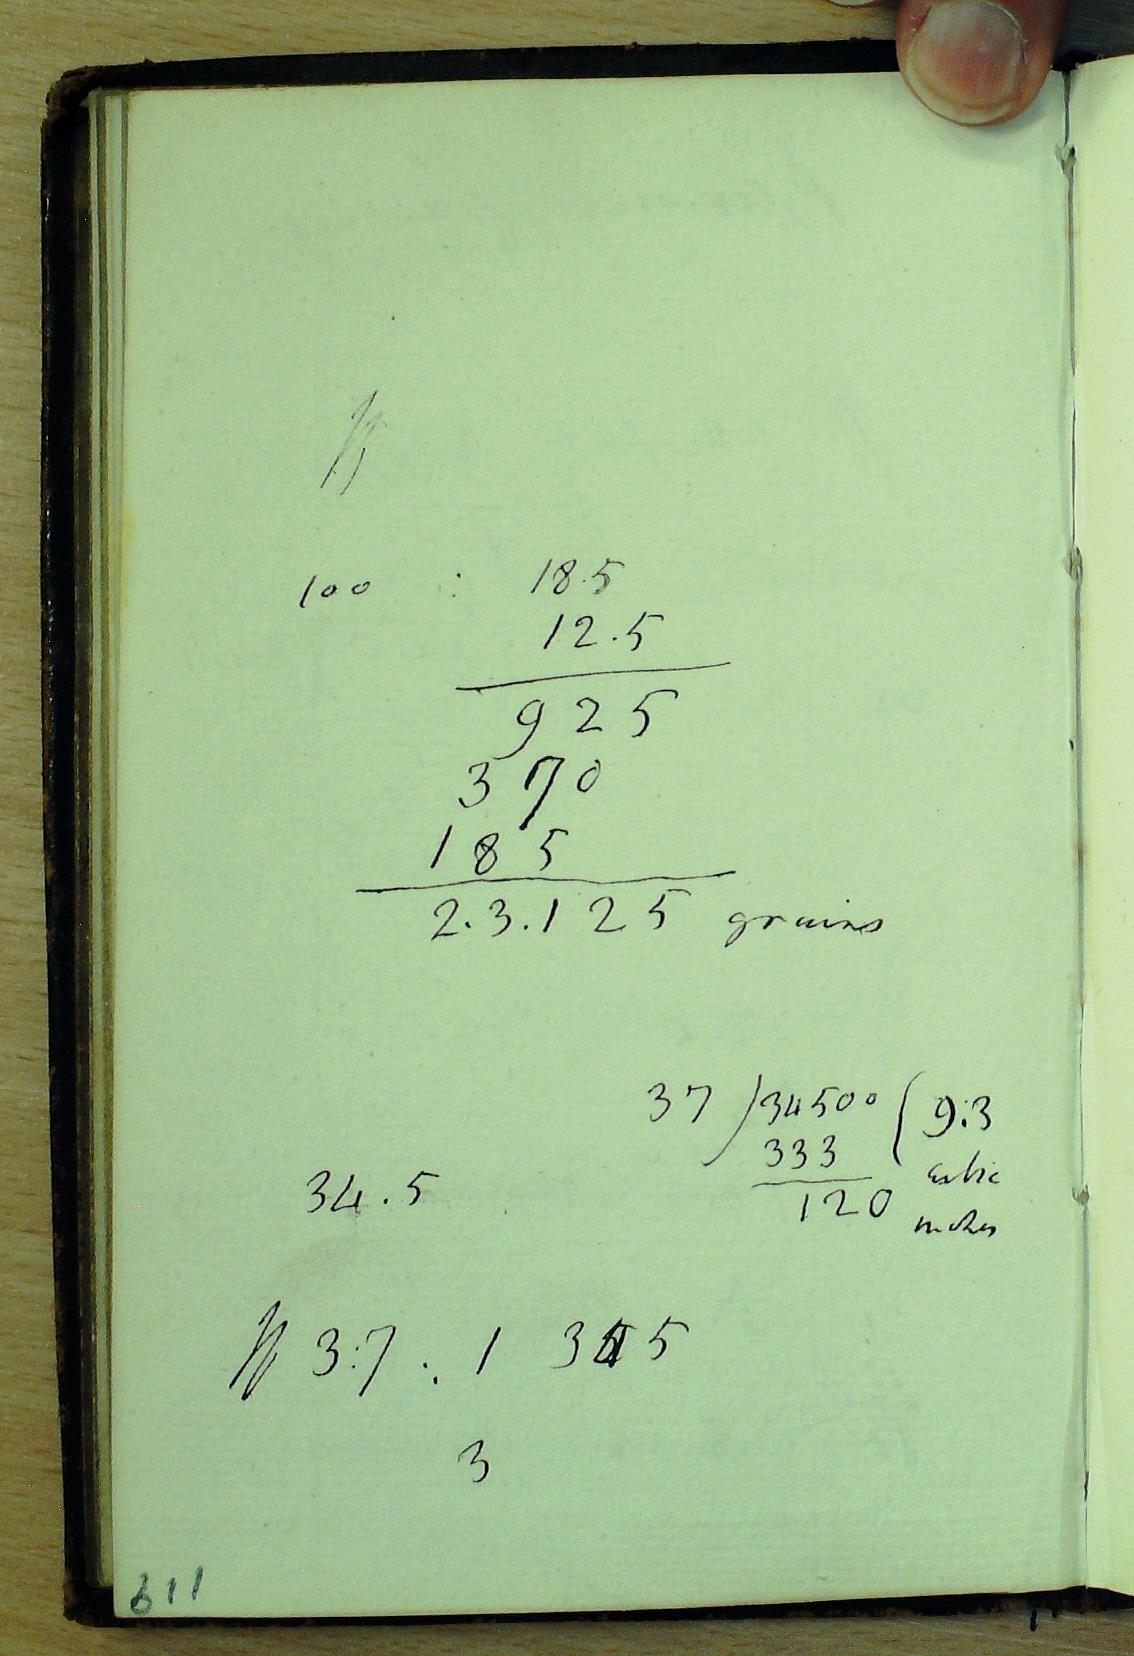 100 : 18.5
12.5
925
370
185
2.3.125 grains
37 ) 34500 ( 9.3
333 cubic
120 inches
34.5
3.7 : 1 3455
3
611